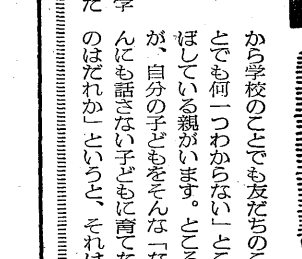 から学校のことでも友だちのこ
とでも何一つわからない」とこ
ぼしている親がいます。ところ
が、自分の子どもをそんな「な
んにも話さない子どもに育てな
のはだれか」というと、それは
学
た